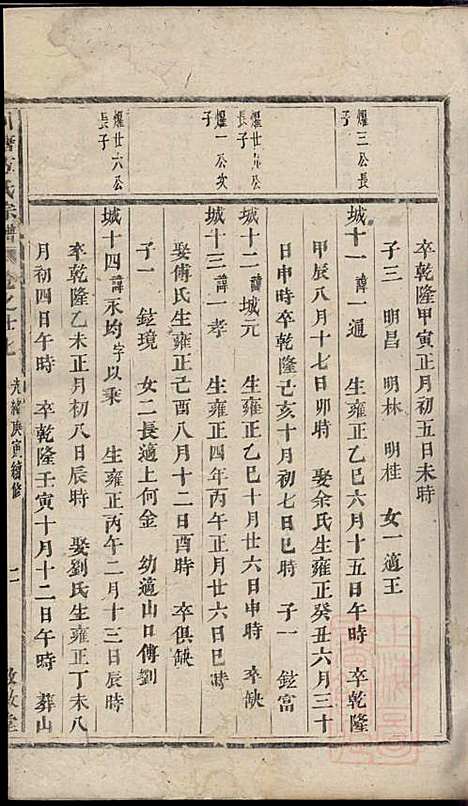 卒乾隆甲寅正月初五日未時
子三 明昌 明林 明桂 女一適王
耀三公長子
城十一 諱一通 生雍正乙巳六月十五日午時 卒乾隆
甲辰八月十七日卯時 娶余氏生雍正癸丑六月三十
日申時卒乾隆己亥十月初七日巳時 子一 鉉富
耀廿五公長子
城十二 諱城元 生雍正乙巳十月廿六日申時 卒缺
耀一公次子
城十三 諱一孝 生雍正四年丙午正月廿六日巳時
娶傅氏生雍正己酉八月十二日酉時 卒俱缺
子一 鉉境 女二長適上何金 幼適山口傅劉
耀廿六公長子
城十四 諱永均字以乘 生雍正丙午二月十三日辰時
卒乾隆乙未正月初八日辰時 娶劉氏生雍正丁未八
月初四日午時 卒乾隆壬寅十月十二日午時 葬山
氏宗譜 卷之廿七 光緒庚寅續修 二 敦堂